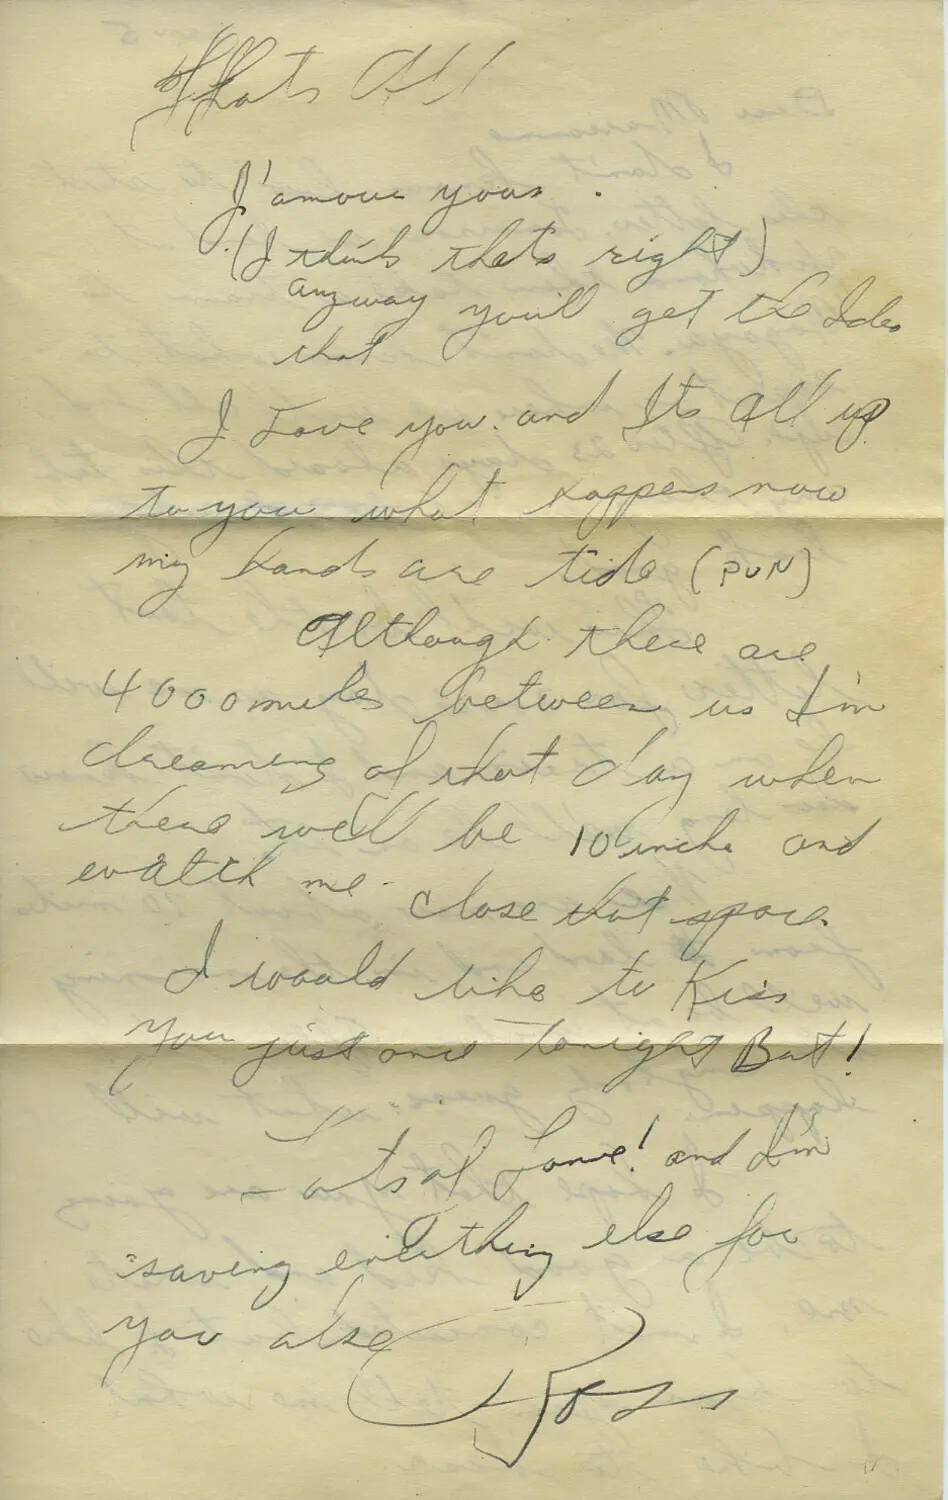 Thats All
J'amour yous.
(I think thats right)
anyway you'll get the Idea
that
I Love you. and Its all up
to you what happens now
my hands are tide (PUN)
Although there are
4000 miles between us I'm
dreaming of that day when
there well be 10 inche and
watch me close that space
I would like to Kiss
you just once tonight But!
Lots of Love! and I'm
saving everthing else for
you alse
Ross